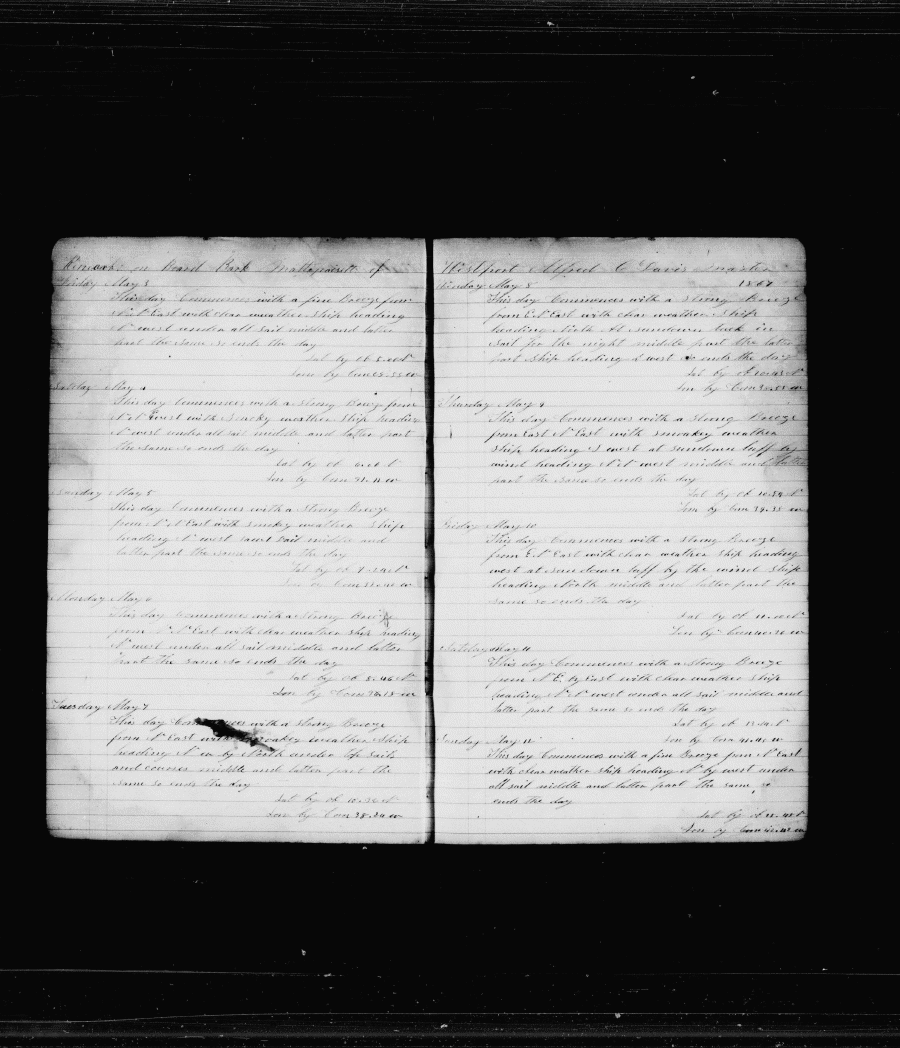 Remarks on Board Bark Mattapoisett of
Friday May 3
This day Commences with a fine Breeze from
N N East with clear weather ship heading
N west under all sail middle and latter
part the same so ends the day
Lat by
Lon by Cron
Saturday May 4
This day Commences with a Strong Breeze from
N N East with Smoky weather Ship heading
N west under all sail middle and latter part
the same so ends the day
Lat by
Lon by Cron
Sunday May 5
This day Commences with a Strong Breeze
from N N East with smokey weather Ship
heading N west saml Sail middle and
latter part the same so ends the day
Lat by
Lon by Cron
Monday May 6
This day Commences with a Strong Breeze
from N N East with clear weather ship heading
N west under all sail middle and latter
part the same so ends the day
Lat by 8.46 N
Lon by Cron
Tuesday May 7
This day Commences with a strong Breeze
from N East with Smoakey weather Ship
heading N w by North under top sails
and courses middle and latter part the
same so ends the day
Lat by
Lon by Cron 38.34 w
Westport Alfred C Davis master
May 8 1867
This day Commences with a strong Breeze
from E N East with clear weather Ship
heading North At sundown took in
sail for the night middle part the latter
part Ship heading N west so ends the day
Lat by
Lon by Cron
Thursday May 9
This day Commences with a Strong Breeze
from East N East with smoakey weather
Ship heading N west at sundown luff by
wind heading N N west middle and latter
part the same so ends the day
Lat by
Lon by Cron 39.35 w
Friday May 10
This day Commences with a Strong Breeze
from E N East with clear weather Ship heading
west at sundown luff by the wind Ship
heading North middle and latter part the
same so ends the day
Lat by
Lon by Cron
Saturday May 11
This day Commences with a Strong Breeze
from N E by East with clear weather Ship
heading N N west under all sail middle and
latter part the same so ends the day
Lat by
Lon by Cron
Sunday May 12
This day Commences with a fine Breeze from N East
with clear weather ship heading N by west under
all sail middle and latter part the same so
ends the day
Lat by
Lon by Cron